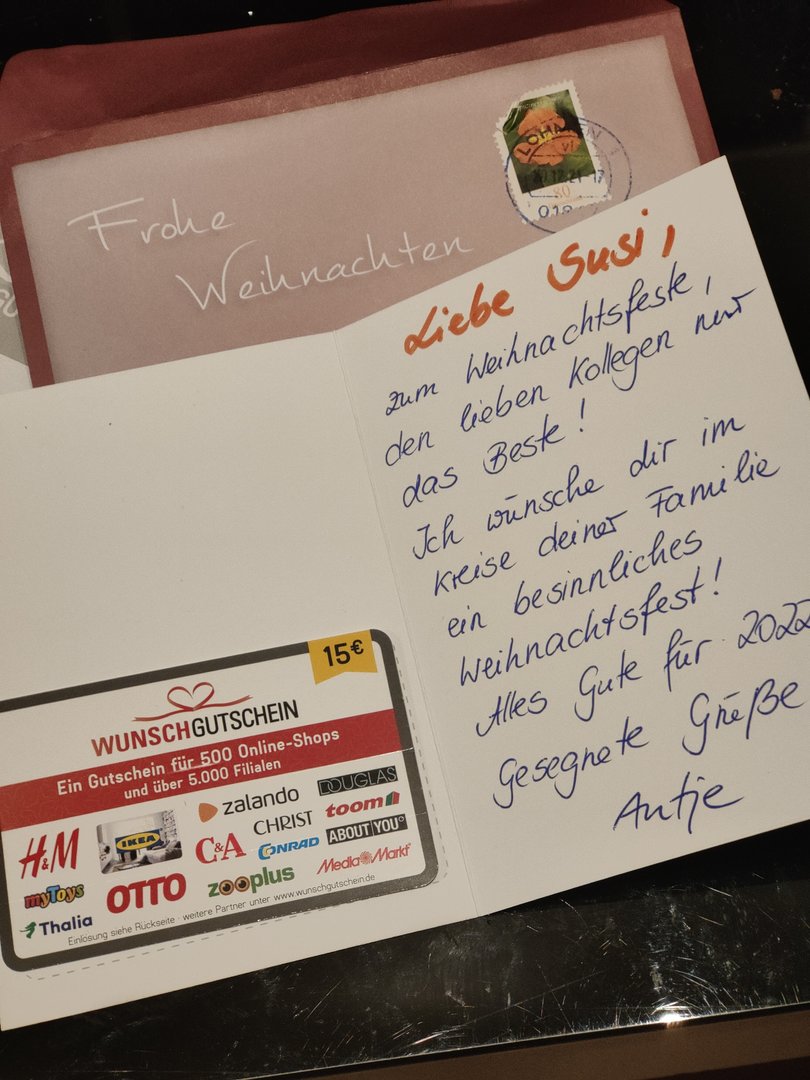 Frohe
Weihnachten
80
Liebe Susi,
zum Weihnachtsfeste,
den lieben Kollegen nur
das Beste!
Ich wünsche dir im
Kreise deiner Familie
ein besinnliches
Weihnachtsfest!
Alles Gute für 2022
Gesegnete Grüße
Antje
15€
WUNSCHGUTSCHEIN
Ein Gutschein für 500 Online-Shops
und über 5.000 Filialen
H&M
IKEA
zalando
DOUGLAS
CHRIST
toom
myToys
OTTO
C&A
CONRAD
ABOUT|YOU°
Thalia
zooplus
MediaMarkt
Einlösung siehe Rückseite · weitere Partner unter www.wunschgutschein.de